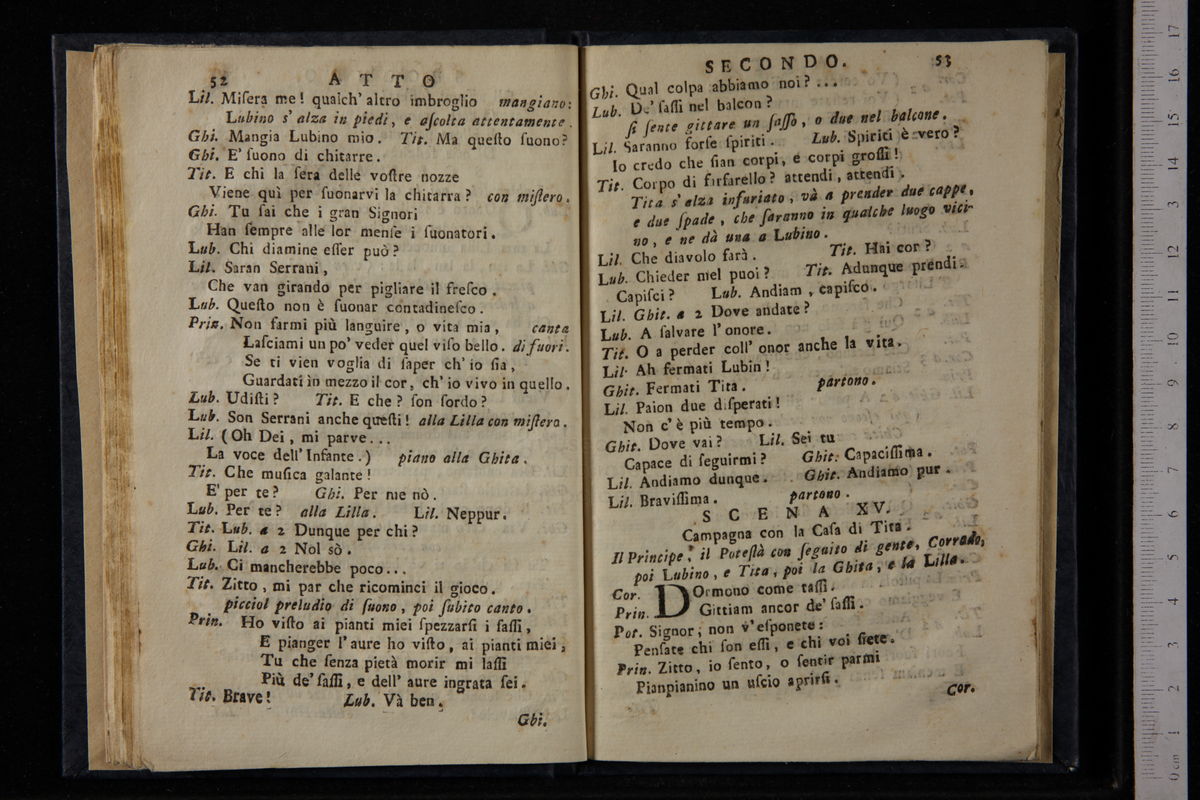 52 ATTO
Lil. Miſera me! qualch' altro imbroglio mangiano:
Lubino s' alza in piedi, e aſcolta attentamente.
Ghi. Mangia Lubino mio. Tit. Ma queſto ſuono?
Ghi. E' ſuono di chitarre.
Tit. E chi la ſera delle voſtre nozze
Viene quì per ſuonarvi la chitarra? con miſtero.
Ghi. Tu ſai che i gran Signori
Han ſempre alle lor menſe i ſuonatori.
Lub. Chi diamine eſſer può?
Lil. Saran Serrani,
Che van girando per pigliare il freſco.
Lub. Queſto non è ſuonar contadineſco.
Prin. Non farmi più languire, o vita mia, canta
Laſciami un po' veder quel viſo bello. di fuori.
Se ti vien voglia di ſaper ch' io ſia,
Guardati in mezzo il cor, ch' io vivo in quello.
Lub. Udiſti? Tit. E che? ſon ſordo?
Lub. Son Serrani anche queſti! alla Lilla con miſtero.
Lil. (Oh Dei, mi parve...
La voce dell' Infante.) piano alla Ghita.
Tit. Che muſica galante!
E' per te? Ghi. Per me nò.
Lub. Per te? alla Lilla. Lil. Neppur.
Tit. Lub. a 2 Dunque per chi?
Ghi. Lil. a 2 Nol sò.
Lub. Ci mancherebbe poco...
Tit. Zitto, mi par che ricominci il gioco.
picciol preludio di ſuono, poi ſubito canto.
Prin. Ho viſto ai pianti miei ſpezzarſi i ſaſſi,
E pianger l' aure ho viſto, ai pianti miei,
Tu che ſenza pietà morir mi laſſi
Più de' ſaſſi, e dell' aure ingrata ſei.
Tit. Brave! Lub. Và ben.
Ghi.
SECONDO. 53
Ghi. Qual colpa abbiamo noi?...
Lub. De' ſaſſi nel balcon?
ſi ſente gittare un ſaſſo, o due nel balcone.
Lil. Saranno forſe ſpiriti. Lub. Spiriti è vero?
Io credo che ſian corpi, e corpi groſſi!
Tit. Corpo di farfarello? attendi, attendi.
Tita s' alza infuriato, và a prender due cappe,
e due ſpade, che ſaranno in qualche luogo vici-
no, e ne dà una a Lubino.
Lil. Che diavolo farà. Tit. Hai cor?
Lub. Chieder mel puoi? Tit. Adunque prendi.
Capiſci? Lub. Andiam, capiſco.
Lil. Ghit. a 2 Dove andate?
Lub. A ſalvare l' onore.
Tit. O a perder coll' onor anche la vita.
Lil. Ah fermati Lubin!
Ghit. Fermati Tita. partono.
Lil. Paion due diſperati!
Non c' è più tempo.
Ghit. Dove vai? Lil. Sei tu
Capace di ſeguirmi? Ghit. Capaciſſima.
Lil. Andiamo dunque. Ghit. Andiamo pur.
Lil. Braviſſima. partono.
SCENA XV.
Campagna con la Caſa di Tita.
Il Principe, il Poteſtà con ſeguito di gente, Corrado,
poi Lubino, e Tita, poi la Ghita, e la Lilla.
Cor. DOrmono come taſſi.
Prin. Gittiam ancor de' ſaſſi.
Pot. Signor, non v' eſponete:
Penſate chi ſon eſſi, e chi voi ſiete.
Prin. Zitto, io ſento, o ſentir parmi
Pianpianino un uſcio aprirſi.
Cor.
0 cm 1 2 3 4 5 6 7 8 9 10 11 12 13 14 15 16 17